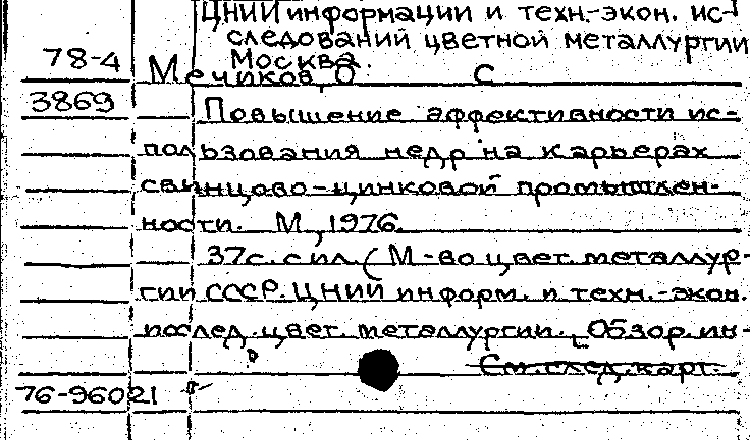 ЦНИИ информации и техн.-экон. ис-
следований цветной металлургии
Москва.
78-4 Мечиков, О С
3869 Повышение эффективности ис-
пользования недр на карьерах
свинцово-цинковой промышлен-
ности. М., 1976.
37с. с ил. (М-во цвет. металлур-
гии СССР. ЦНИИ информ. и техн.-экон.
исслед. цвет. металлургии. Обзор. ин-
См. след. карт.
76-96021